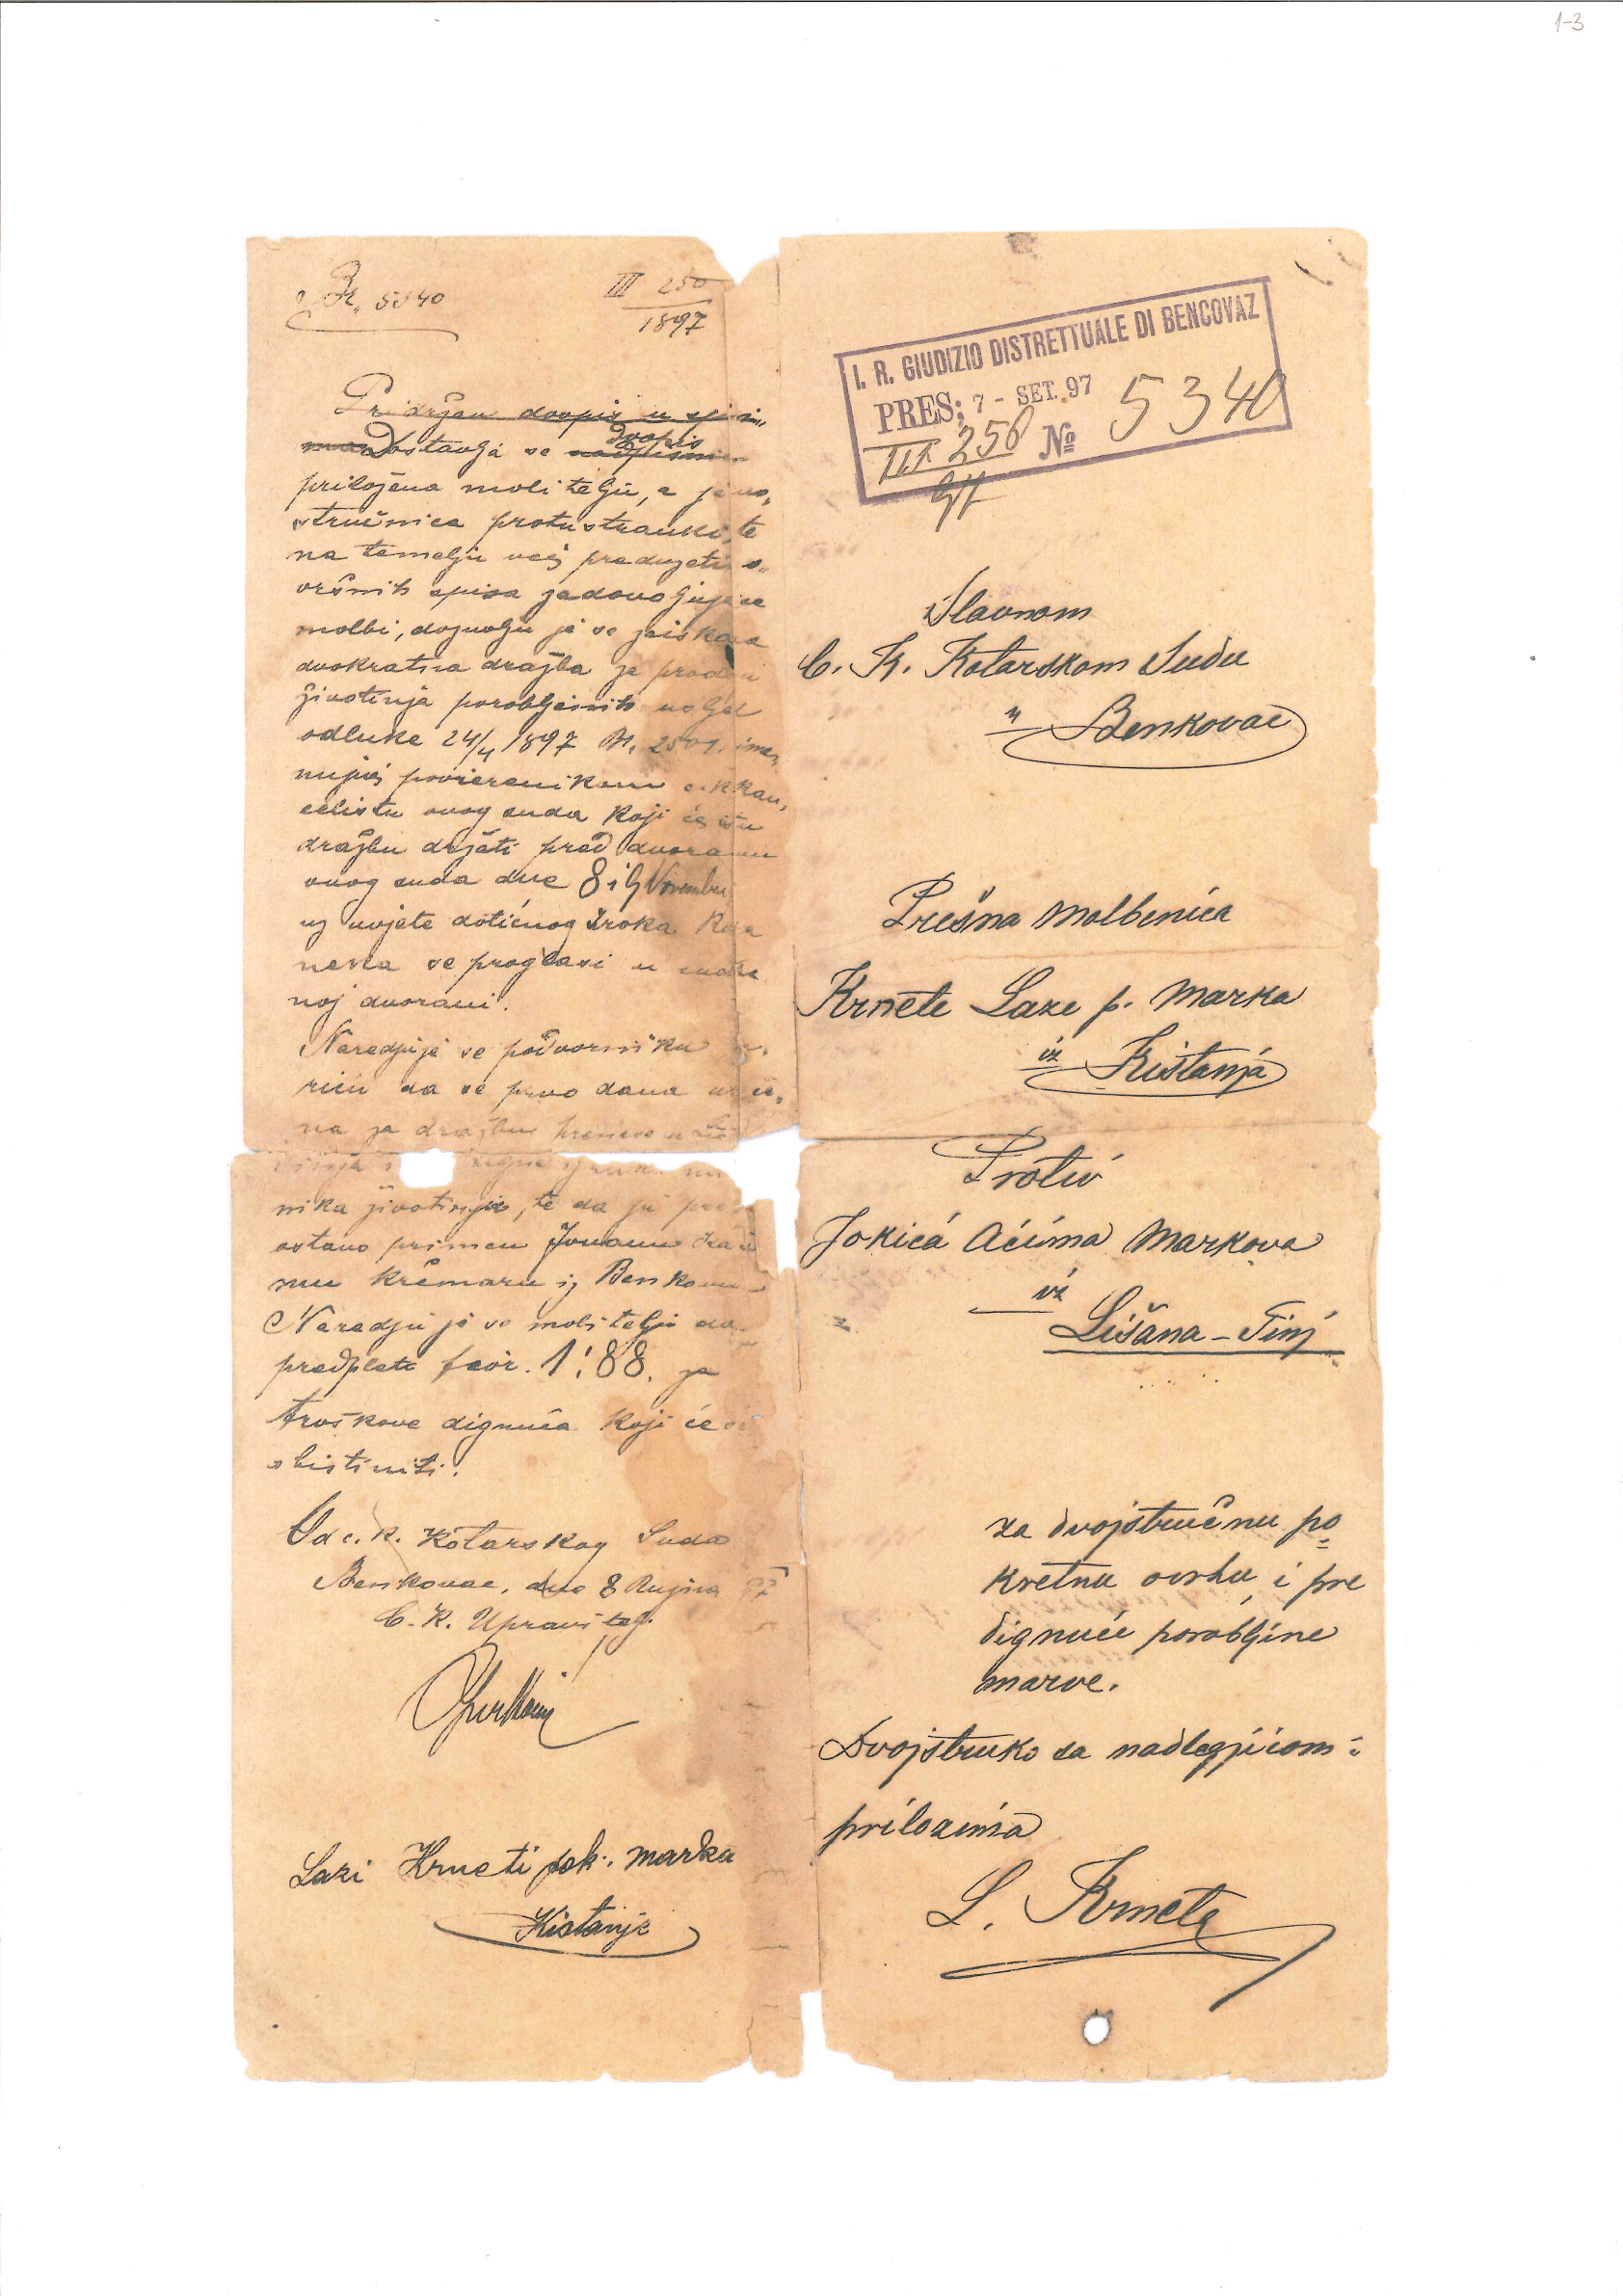 1-3
Br. 5340
III 250
1897
Pridržan dvopis u spisi„
ma Dostavlja se dvopis
priložena molitelju, a jedno„
stručnica protustranki, te
na temelju već preduzetih o„
vršnih spisa zadovoljuje se
molbi, dozvolju je se zaiskana
dvokratna dražba za prodaju
životinja porobljenih usljed
odluke 24/4 1897 Br. 2501. ime„
nujuć povjerenikom c. k. kan„
celistu ovog suda koji će istu
dražbu držati pred dvoranu
ovog suda dne 8 i 9 Novembra
uz uvjete dotičnog iroka koja
neka se proglasi u sudbe
noj dvorani.
Naredjuje se podvorniku
riću da se prvo dana ureče„
na za dražbu prenese u
nika životinja, te da ju
ostavo primcu Jovanu
mu krčmaru iz Benkovca
Naredju je se molitelju da
predplati fior. 1:88. za
troškove dignuća koji će se
obistiniti.
Od c. k. Kotarskog Suda
Benkovac, dne 8 Rujna 97
C. K. Upravitelj
Lazi Krneti pok. Marka
Kistanje
I. R. GIUDIZIO DISTRETTUALE DI BENCOVAZ
PRES: 7 - SET. 97
III 250 No 5340
97
Slavnom
C. K. Kotarskom Sudu
u Benkovac
Prešna molbenica
Krnete Laze p. Marka
iz Kištanja
Protiv
Jokića Aćima Markova
iz
Lišana - Tinj
za dvojstručnu po
kretnu ovrhu i pre
dignuće porobljene
marve.
Dvojstruko sa nadležjućom
priložima
L. Krneta